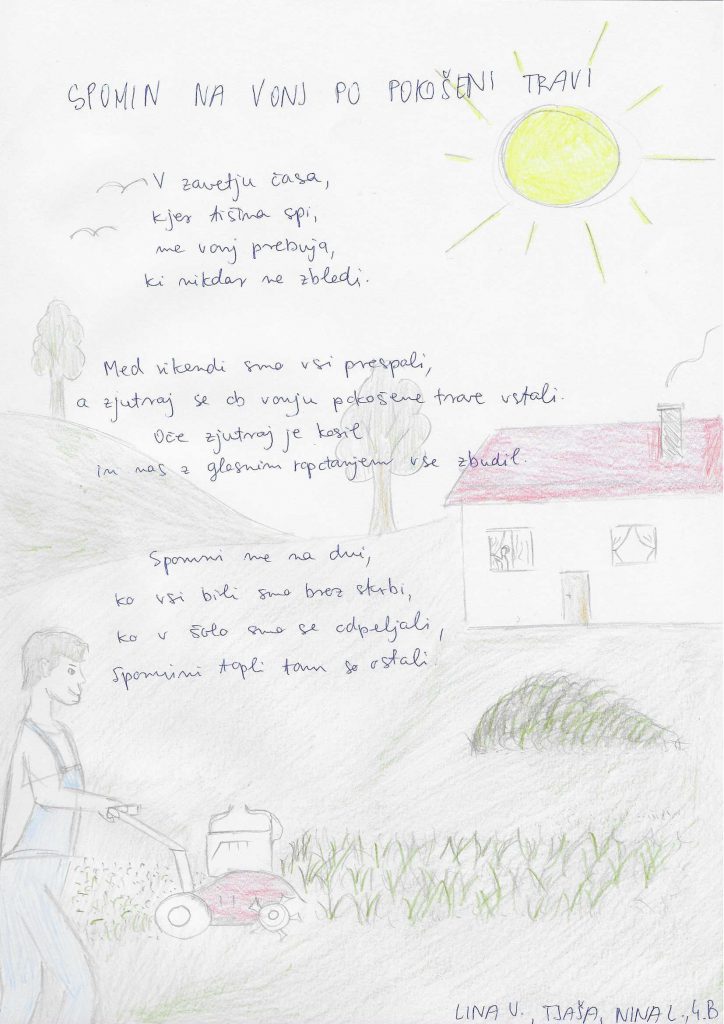 SPOMIN NA VONJ PO POKOŠENI TRAVI
V zavetju časa,
kjer tišina spi,
me vonj prebuja,
ki nikdar ne zbledi.
Med vikendi smo vsi prespali,
a zjutraj se ob vonju pokošene trave vstali.
Oče zjutraj je kosil
in nas z glasnim ropotanjem vse zbudil.
Spomni me na dni,
ko vsi bili smo brez skrbi,
ko v šolo smo se odpeljali,
Spomini topli tam so ostali.
LINA U., TJAŠA, NINA L., 4.B